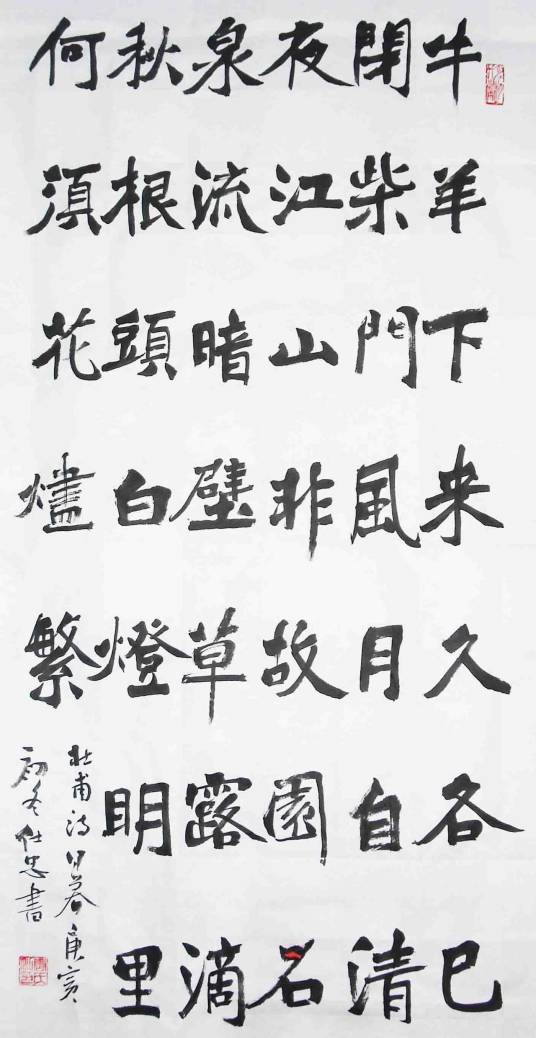 牛羊下来久各已
閉柴門風月自清
夜江山非故園石
泉流暗壁草露滴
秋根頭白燈明里
何須花燼繁
杜甫诗日暮庚寅
初冬仕忠書